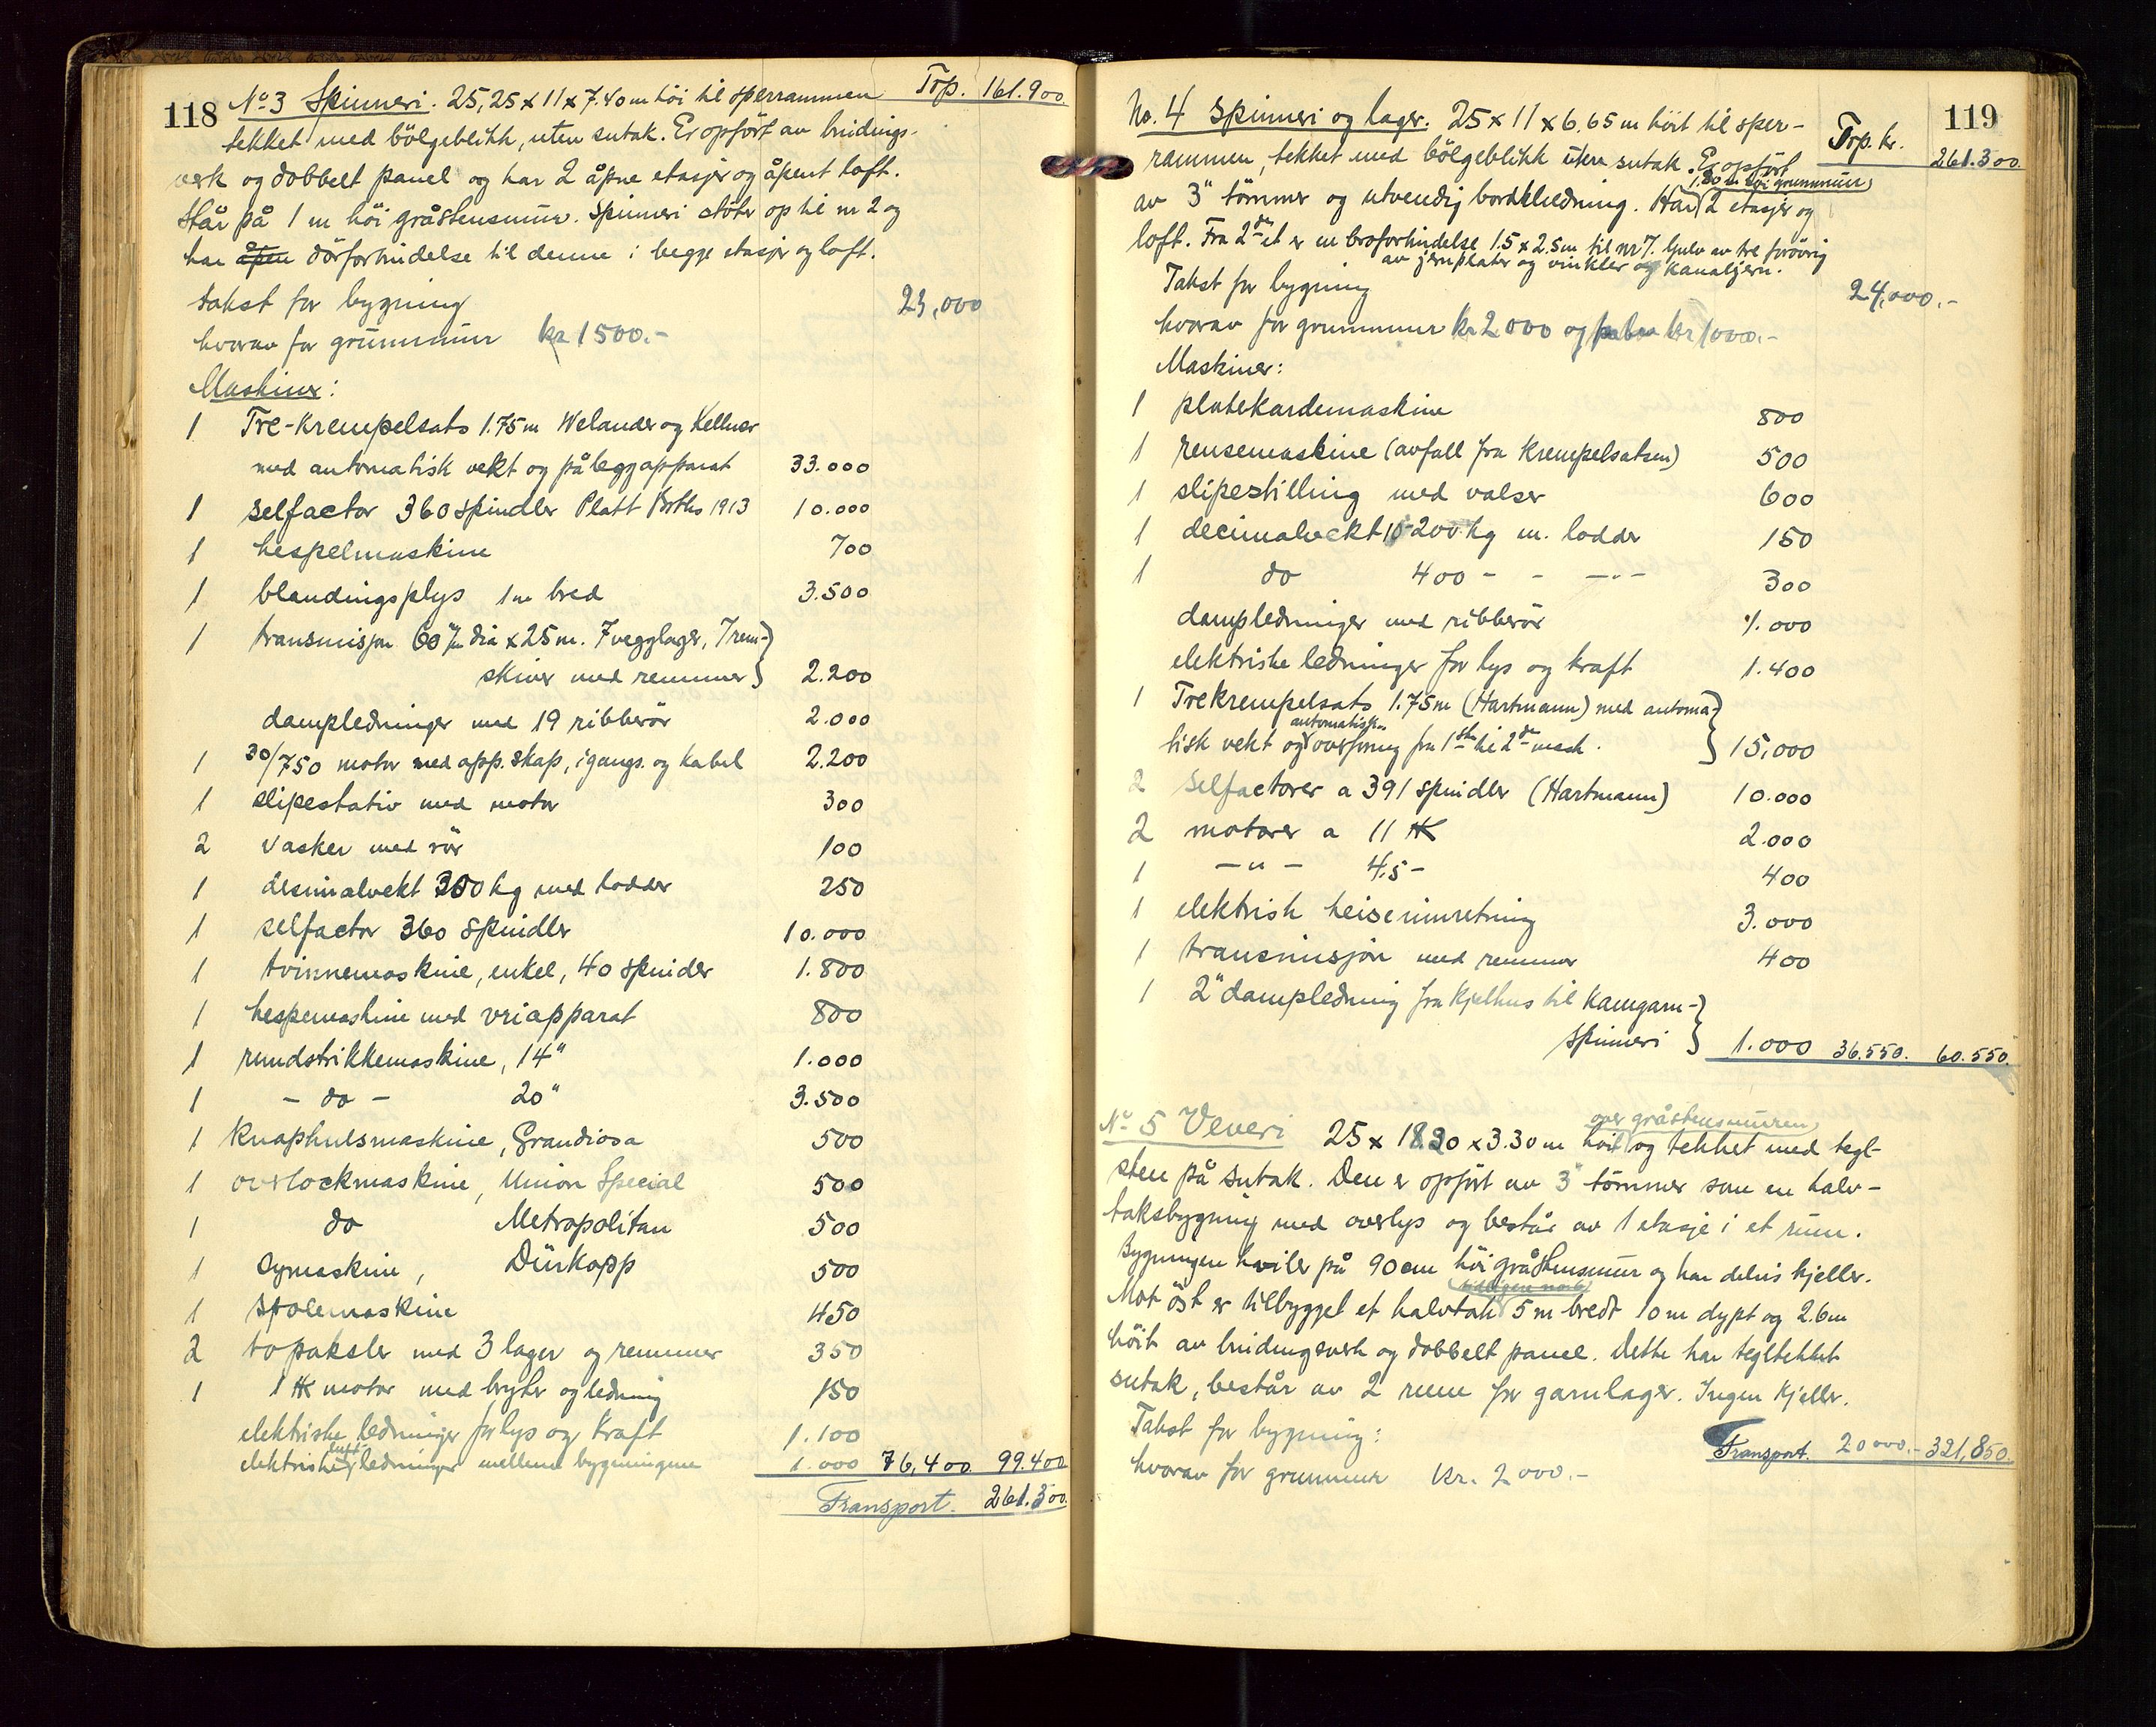 118 No 3 Spinneri. 25,25 x 11 x 7.40 m höi til sperrammen Trp. 161.900
tekket med bölgeblikk, uten sutak. Er opført av bindings-
verk og dobbelt panel og har 2 åpne etasjer og åpent loft.
Står på 1 m höi gråstensmur. Spinneri støter op til nr 2 og
har åpen dörforbindelse til denne i begge etasjer og loft.
takst for bygning 23,000
hvorav for grunnmur kr 1500.-
Maskiner:
1 Tre-krempelsats 1.75m Welander og Kellner
med automatisk vekt og påleggapparat 33.000
1 selfactor 360 spindler Platt Broths 1913 10.000
1 hespelmaskine 700
1 blandingsplys 1 m bred 3.500
1 transmisjon 60 m/m dia x 25 m. 7 vegglager, 7 rem-
skiver med remmer 2.200
dampledninger med 19 ribberör 2.000
1 30/750 motor med app. skap, igangs. og kabel 2.200
1 slipestativ med motor 300
2 vasker med rör 100
1 desimalvekt 300 kg med lodder 250
1 selfactor 360 spindler 10.000
1 tvinnemaskine, enkel, 40 spinder 1.800
1 hespemaskine med vriapparat 800
1 rundstrikkemaskine, 14" 1.000
1 - do - 20" 3.500
1 knaphulsmaskine, Grandiosa 500
1 overlockmaskine, Union Special 500
1 do Metropolitan 500
1 symaskine, Dürkopp 500
1 spolemaskine 450
2 topaksler med 3 lager og remmer 350
1 1 HK motor med bryter og ledning 150
elektriske ledninger for lys og kraft 1.100
elektriske luftledninger mellem bygningene 1.000 76,400 99.400
Transport. 261.300
119
No. 4 Spinneri og lager. 25 x 11 x 6.65 m höit til sper- Trp. kr. 261.300
rammen, tekket med bölgeblikk uten sutak. Er opført
av 3" tömmer og utvendig bordkledning. Har 1,80 m höi grunnmur, 2 etasjer og
loft. Fra 2 den et er en broforbindelse 1.5 x 2.5m til nr 7. Gulv av tre forövrig
av jernplater og vinkler og kanaljern.
Takst for bygning 24,000.-
hvorav for grunnmur kr 2000 og kr 1000.-
Maskiner:
1 platekardemaskine 800
1 rensemaskine (avfall fra krempelsatsen) 500
1 slipestilling med valser 600
1 decimalvekt 10-200 kg m. lodder 150
1 do 400 - - -"- 300
dampledninger med ribberör 1.000
elektriske ledninger for lys og kraft 1.400
1 Trekrempelsats 1.75m (Hartmann) med automa-
tisk vekt og automatisk overföring fra 1ste til 2den mask. 15,000
2 selfactorer a 391 spindler (Hartmann) 10.000
2 motorer a 11 HK 2.000
1 -"- 4,5 - 400
1 elektrisk heiseinnretning 3.000
1 transmisjon med remmer 400
1 2" dampledning fra kjelhus til kamgarn-
spinneri 1.000 36.550. 60.550.
No 5 Veveri 25 x 18.20 x 3.30 m höit over gråstensmuren, og tekket med tegl-
sten på sutak. Den er opfört av 3" tömmer som en halv-
taksbygning med overlys og består av 1 etasje i et rum.
Bygningen hviler på 90 cm höi gråstensmur og har delvis kjeller.
Mot öst er tilbygget et halvtak 5 m bredt 10 m dypt og 2.6m
höit av bindingsverk og dobbelt panel. Dette har tegltekket
sutak, består av 2 rum for garnlager. Ingen kjeller.
Takst for bygning: 20000.-
Transport. 321,850.
hvorav for grunnmur kr. 2000.-